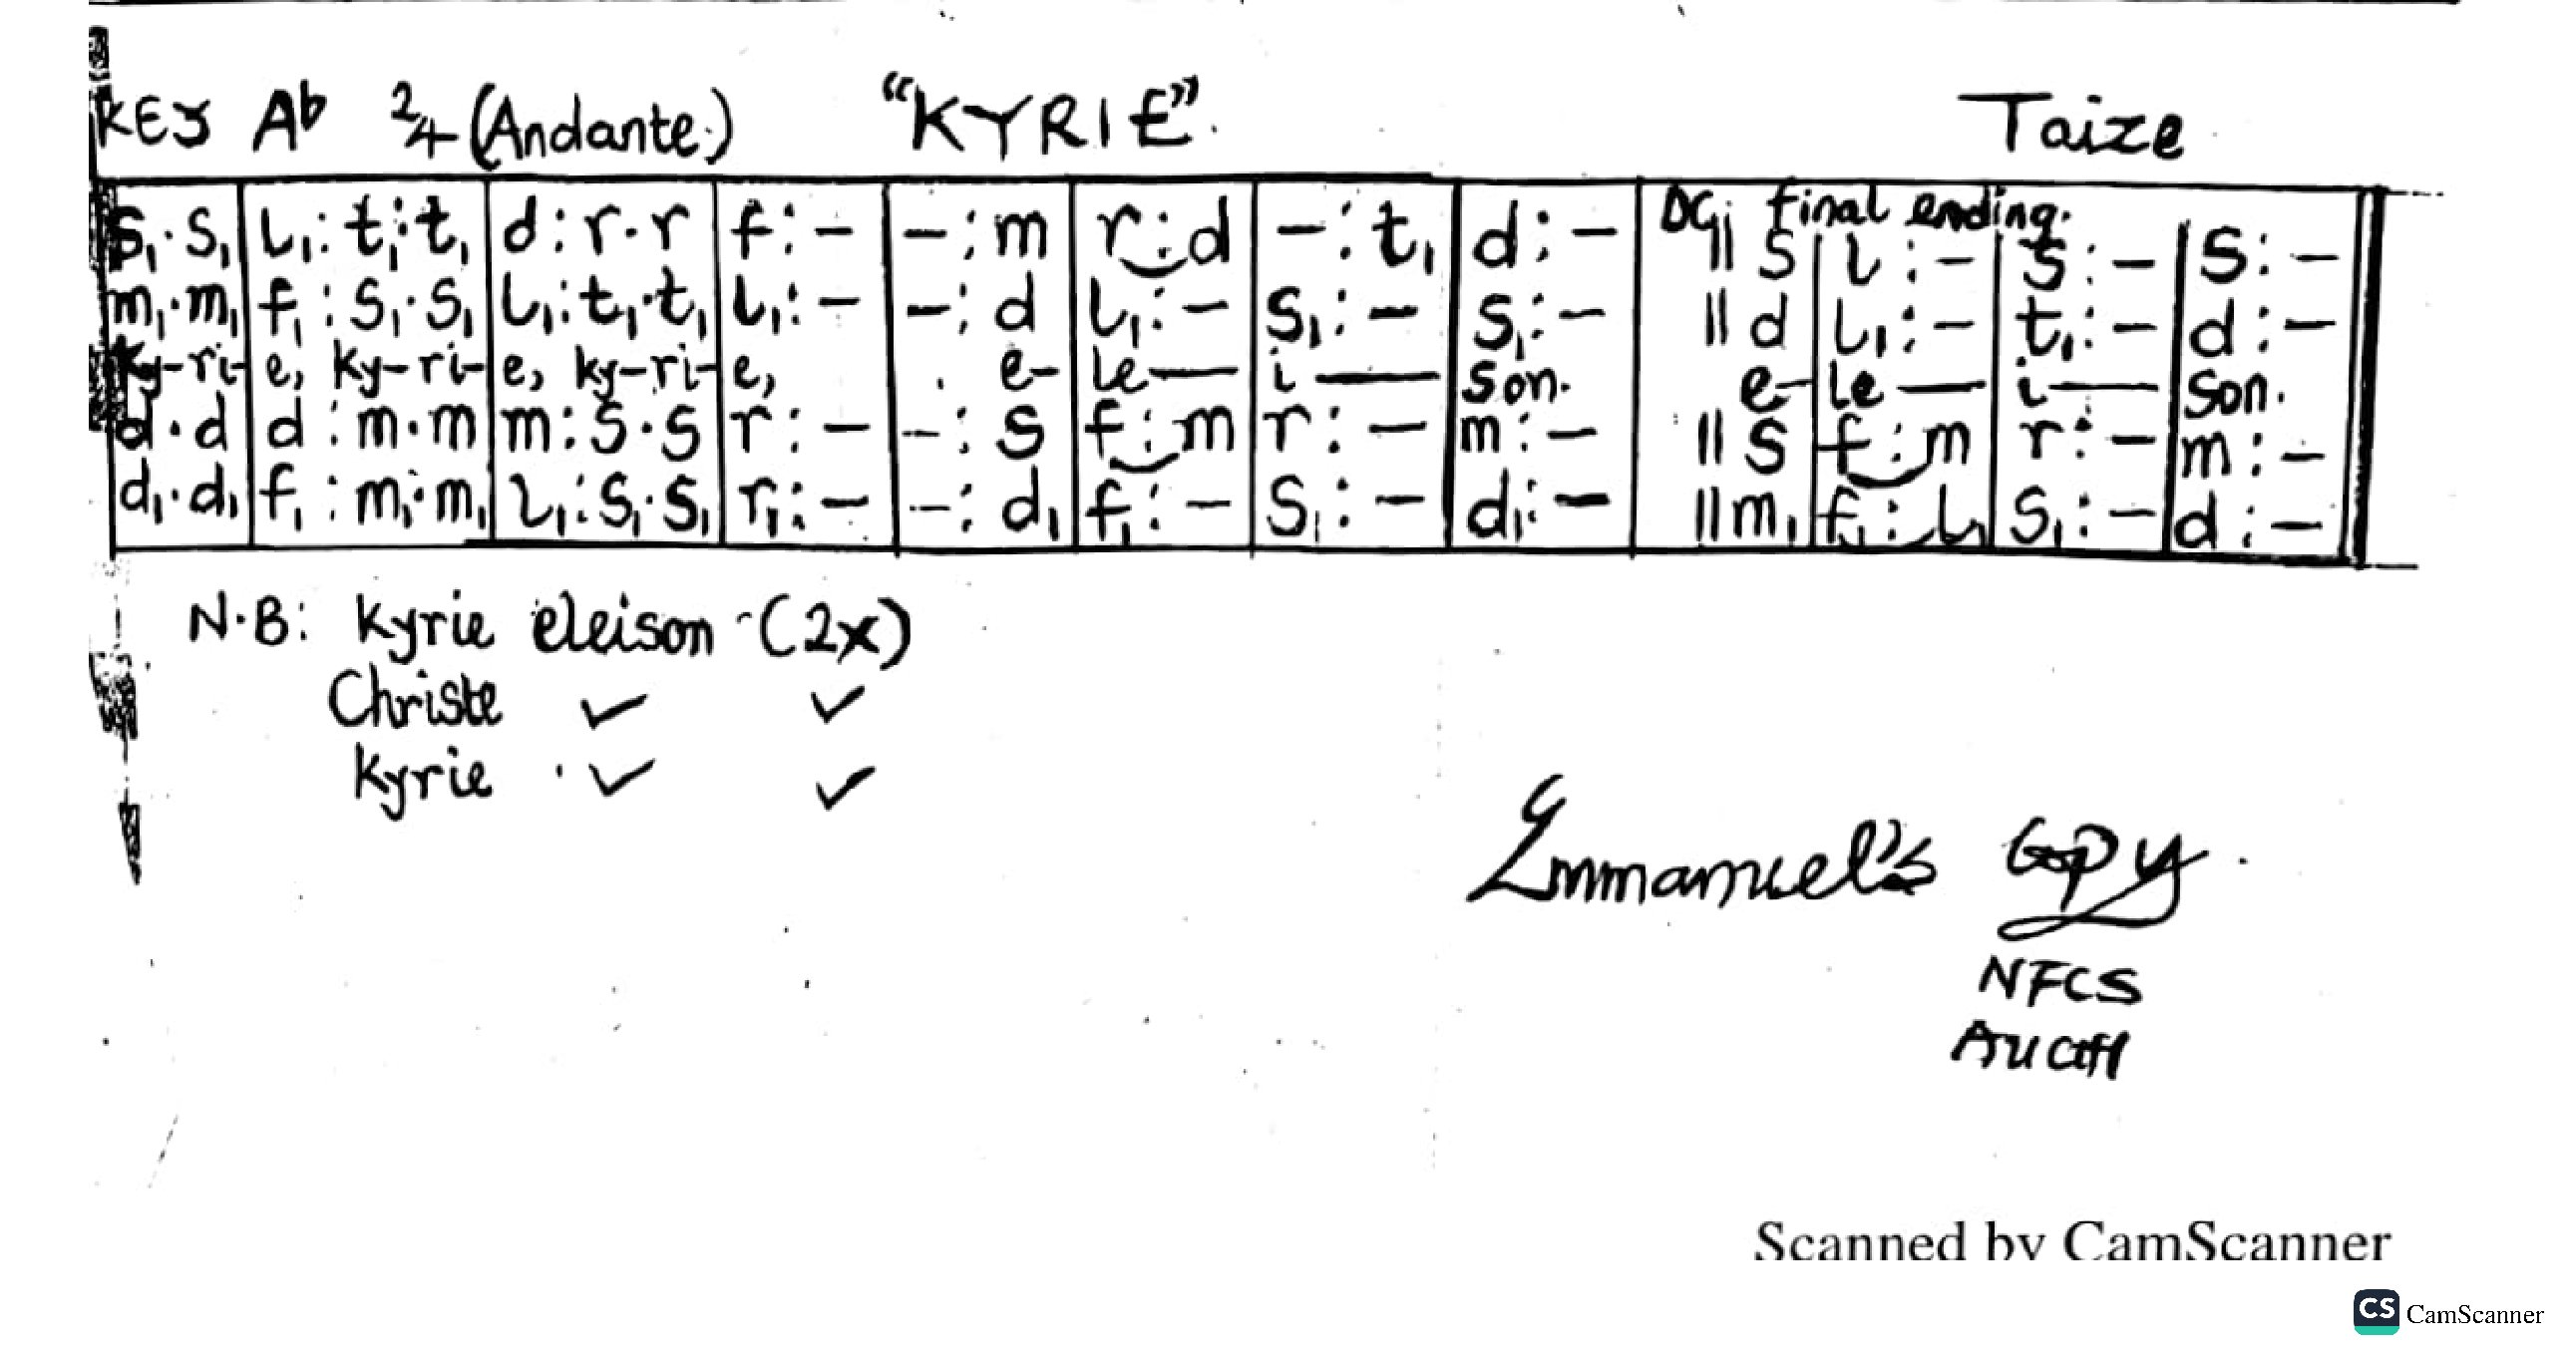 KEY Ab 2/4 (Andante.) "KYRIE". Taize
DC|| final ending.
s₁.s₁ | l₁:t₁.t₁ | d:r.r | f:– | –:m | r:d | –:t₁ | d:– || s | l:– | s:– | s:– ||
m₁.m₁ | f₁:s₁.s₁ | l₁:t₁.t₁ | l₁:– | –:d | l₁:– | s₁:– | s₁:– || d | l₁:– | t₁:– | d:– ||
Ky-ri- e, ky-ri- e, ky-ri- e, e- le — i — son. e- le — i — son.
d.d | d:m.m | m:s.s | r:– | –:s | f:m | r:– | m:– || s | f:m | r:– | m:– ||
d₁.d₁ | f₁:m₁.m₁ | l₁:s₁.s₁ | r₁:– | –:d₁ | f₁:– | s₁:– | d₁:– || m₁ | f₁:l₁ | s₁:– | d:– ||
N.B: Kyrie eleison (2x)
Christe ✓ ✓
Kyrie ✓ ✓
Emmanuel's Copy.
NFCS
AUCHI
Scanned by CamScanner
CS CamScanner